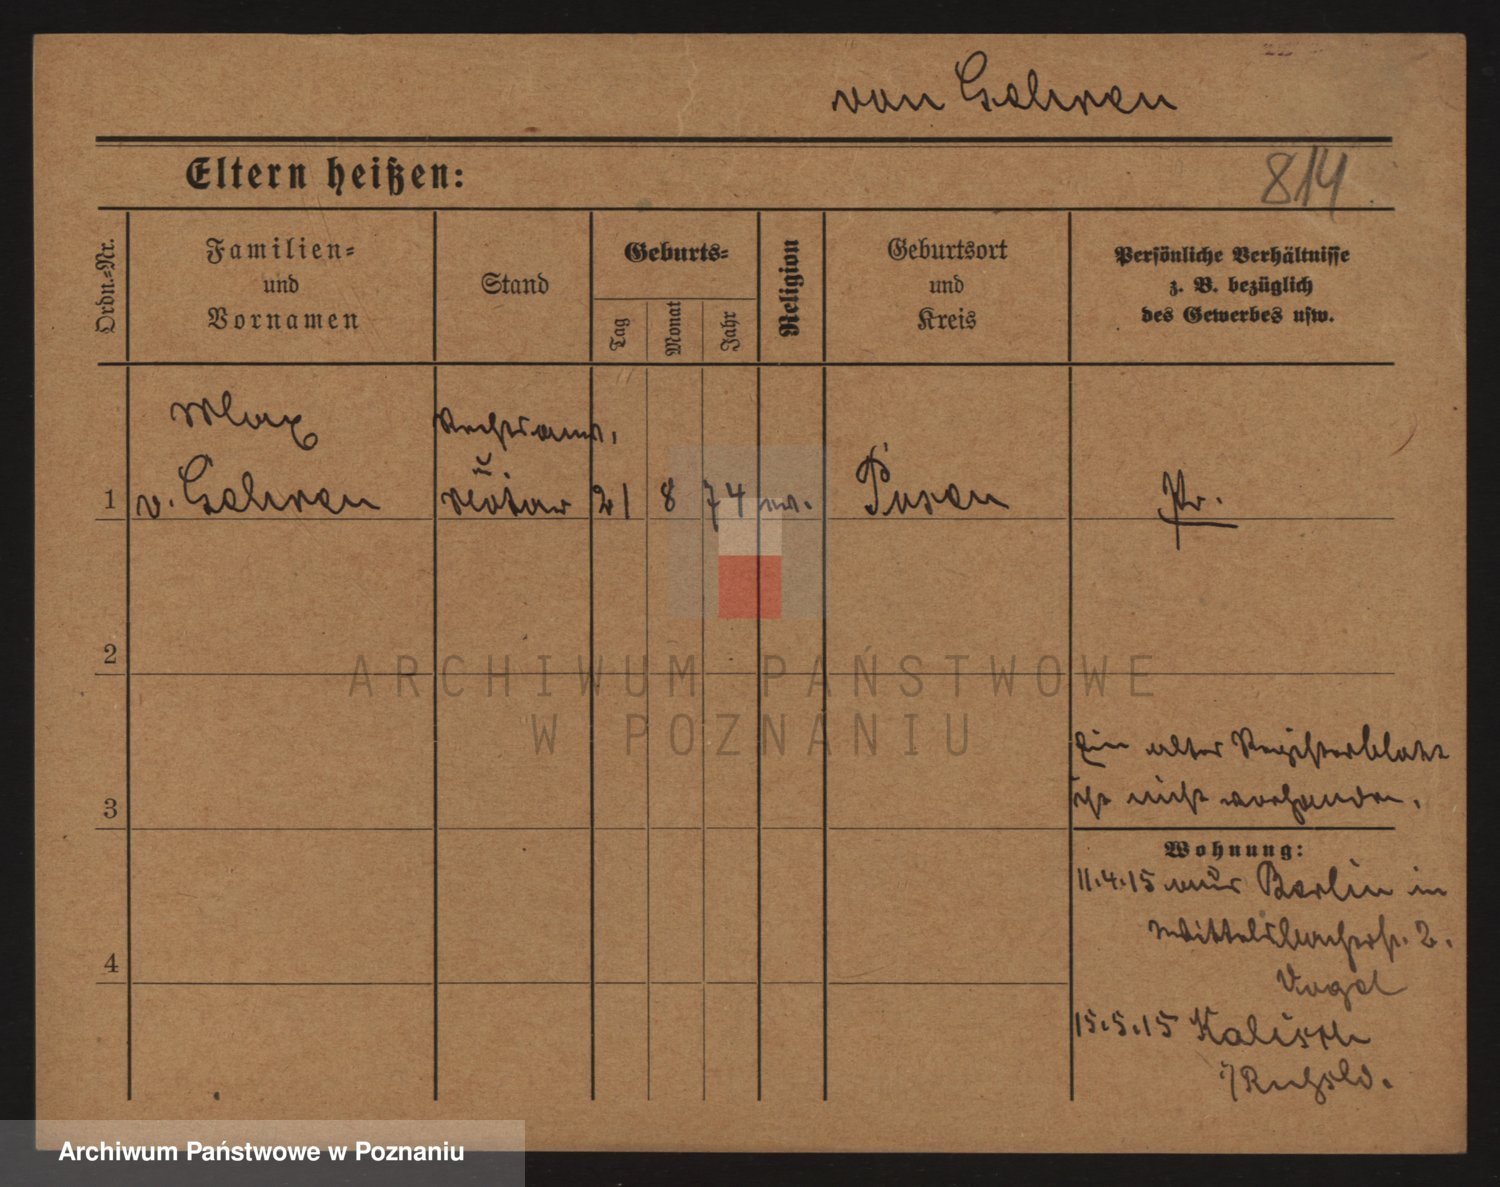 von Gehren
Eltern heißen:
814
Ordn.-Nr.
Familien-
und
Vornamen
Stand
Geburts-
Tag
Monat
Jahr
Religion
Geburtsort
und
Kreis
Persönliche Verhältnisse
z. B. bezüglich
des Gewerbes usw.
Max
Rechtsanw.
1
v. Gehren
Notar
21
8
74
Posen
Pr.
2
Ein alter Registerblatt
ist nicht vorhanden.
3
Wohnung:
11.4.15 Berlin in
Wittelsbacherst. 2.
Vogel
4
15.5.15 Kalisch
ARCHIWUM PAŃSTWOWE
W POZNANIU
Archiwum Państwowe w Poznaniu